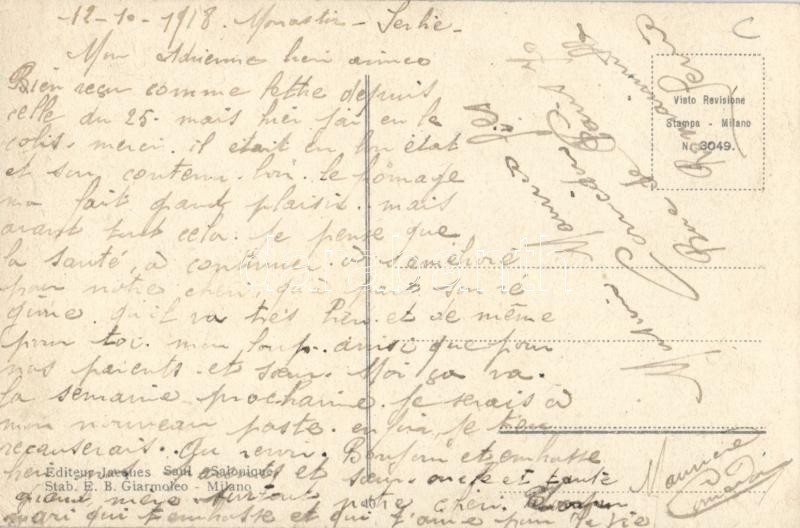 12-10-1918. Monastir - Serbie -
Mon Adrienne bien aimée
Bien reçu comme lettre depuis
celle du 25. mais hier j'ai eu le
colis. merci. il était en bon état
et son contenu bon. le fromage
ma fait grand plaisir. mais
avant tout cela. Je pense que
la santé à continuer à s'amélioré
pour notre cheri. qu'à part son
qu'il va très bien. et de même
pour toi. mon loup. ainsi que pour
nos parents. et sœur. Moi ça va.
la semaine prochaine. je serais à
mon nouveau poste. je t'en
recauserais. Au revoir. Bonjour et embrasse
et sœur. oncle et tante
grand mère. surtout notre cheri.
mari qui t'embrasse et qui t'aime pour la vie
Maurice
Editeur Jacques Saul - Salonique
Stab. E. B. Giarmoleo - Milano
40
Visto Revisione
Stampa - Milano
N. 3049.
Rue de Paris